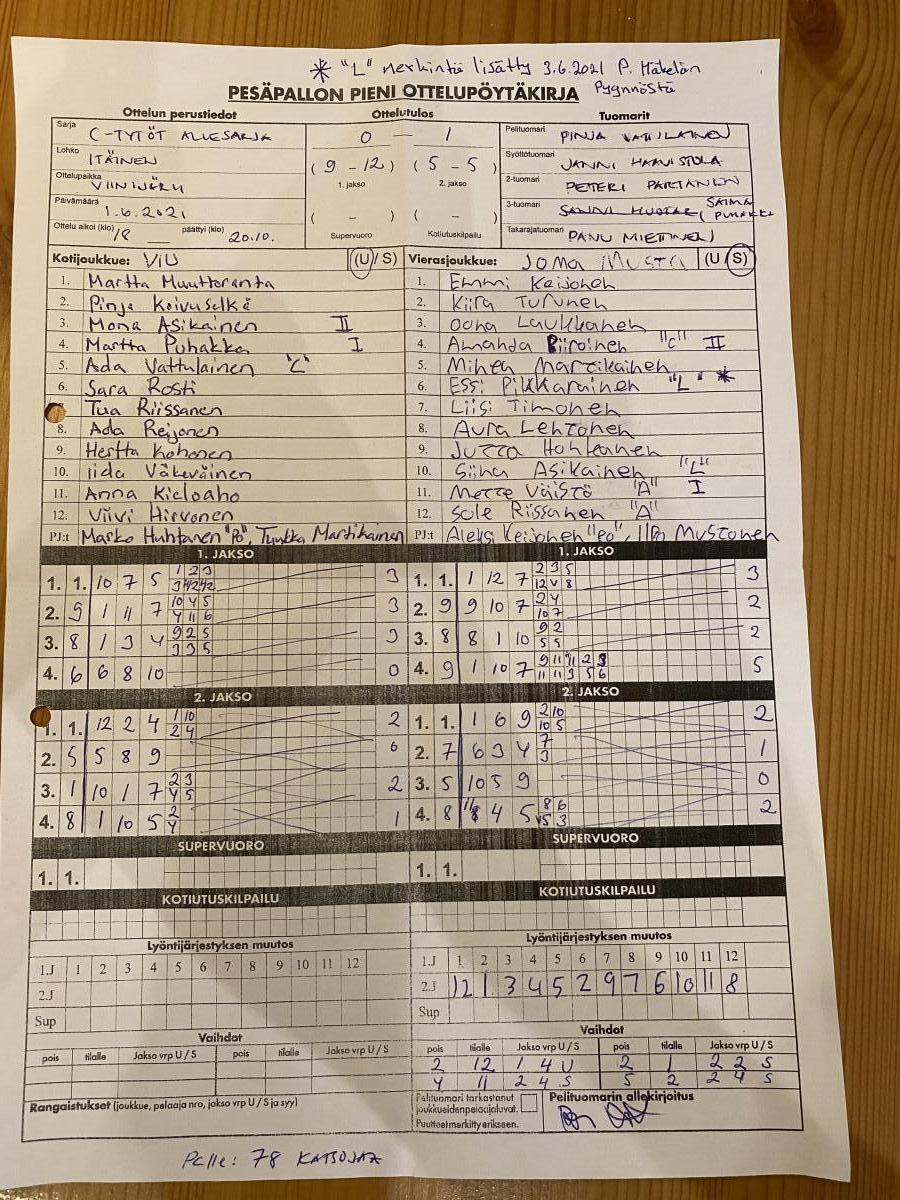 * "L" merkintä lisätty 3.6.2021 P. Mäkelän
pyynnöstä
PESÄPALLON PIENI OTTELUPÖYTÄKIRJA
Ottelun perustiedot Ottelutulos Tuomarit
Sarja C-TYTÖT ALUESARJA 0 - 1 Pelituomari PINJA VATULAINEN
Lohko ITÄINEN (9-12) (5-5) Syöttötuomari JANNI HARVISTOLA
Ottelupaikka VIINIJÄRVI 1. jakso 2. jakso 2-tuomari PETERI PARTANEN
Päivämäärä 1.6.2021 ( - ) ( - ) 3-tuomari SAIMA PUHAKKA
Ottelu alkoi (klo) 18 päättyi (klo) 20.10. Supervuoro Kotiutuskilpailu Takarajatuomari PANU MIETTINEN
Kotijoukkue: ViU (U/S) Vierasjoukkue: JOMA MUSTA (U/S)
1. Martta Muuttoranta 1. Emmi Keijonen
2. Pinja Koivuselkä 2. Kiira Turunen
3. Mona Asikainen II 3. Oona Laukkanen
4. Martta Puhakka I 4. Amanda Piiroinen "C" II
5. Ada Vattulainen "C" 5. Minea Martikainen
6. Sara Rosti 6. Essi Pikkarainen "L" *
Tua Riissanen 7. Liisi Timonen
8. Ada Reijonen 8. Aura Lehtonen
9. Hertta Kohonen 9. Jutta Hohkanen
10. Iida Väkeväinen 10. Siina Asikainen "L"
11. Anna Kieloaho 11. Mette Väistö "A" I
12. Viivi Hirvonen 12. Sole Rissanen "A"
PJ:t Marko Huhtanen "PJ", Tuukka Martikainen PJ:t Aleksi Keijonen "PJ", Ilpo Mustonen
1. JAKSO 1. JAKSO
1. 1. 10 7 5 1 2 3 3 1. 1. 1 12 7 2 3 5 12 4 8 3
2. 9 1 11 7 10 4 5 4 11 6 3 2. 9 9 10 7 2 4 10 7 2
3. 8 1 3 4 9 2 5 3 3 5 3 3. 8 8 1 10 9 2 5 5 2
4. 6 6 8 10 0 4. 9 1 10 7 9 11 11 2 3 11 11 3 5 6 5
2. JAKSO 2. JAKSO
1. 1. 12 2 4 1 10 2 4 2 1. 1. 1 6 9 2 10 10 5 2
2. 5 5 8 9 0 2. 7 6 3 4 7 3 1
3. 1 10 1 7 2 3 4 5 2 3. 5 10 5 9 0
4. 8 1 10 5 2 4 1 4. 8 4 5 8 6 5 3 2
SUPERVUORO SUPERVUORO
1. 1. 1. 1.
KOTIUTUSKILPAILU KOTIUTUSKILPAILU
Lyöntijärjestyksen muutos Lyöntijärjestyksen muutos
1.J 1 2 3 4 5 6 7 8 9 10 11 12 1.J 1 2 3 4 5 6 7 8 9 10 11 12
2.J 2.J 12 1 3 4 5 2 9 7 6 10 11 8
Sup Sup
Vaihdot Vaihdot
pois tilalle Jakso vrp U / S pois tilalle Jakso vrp U / S pois tilalle Jakso vrp U / S pois tilalle Jakso vrp U / S
2 12 1 4 U 2 1 2 2 S
4 11 2 4 S 5 2 2 4 S
Rangaistukset (joukkue, pelaaja nro, jakso vrp U / S ja syy) Pelituomari tarkastanut Pelituomarin allekirjoitus
joukkueiden pelaajaluvat.
Puutteet merkitty erikseen.
P:lle: 78 KATSOJAA